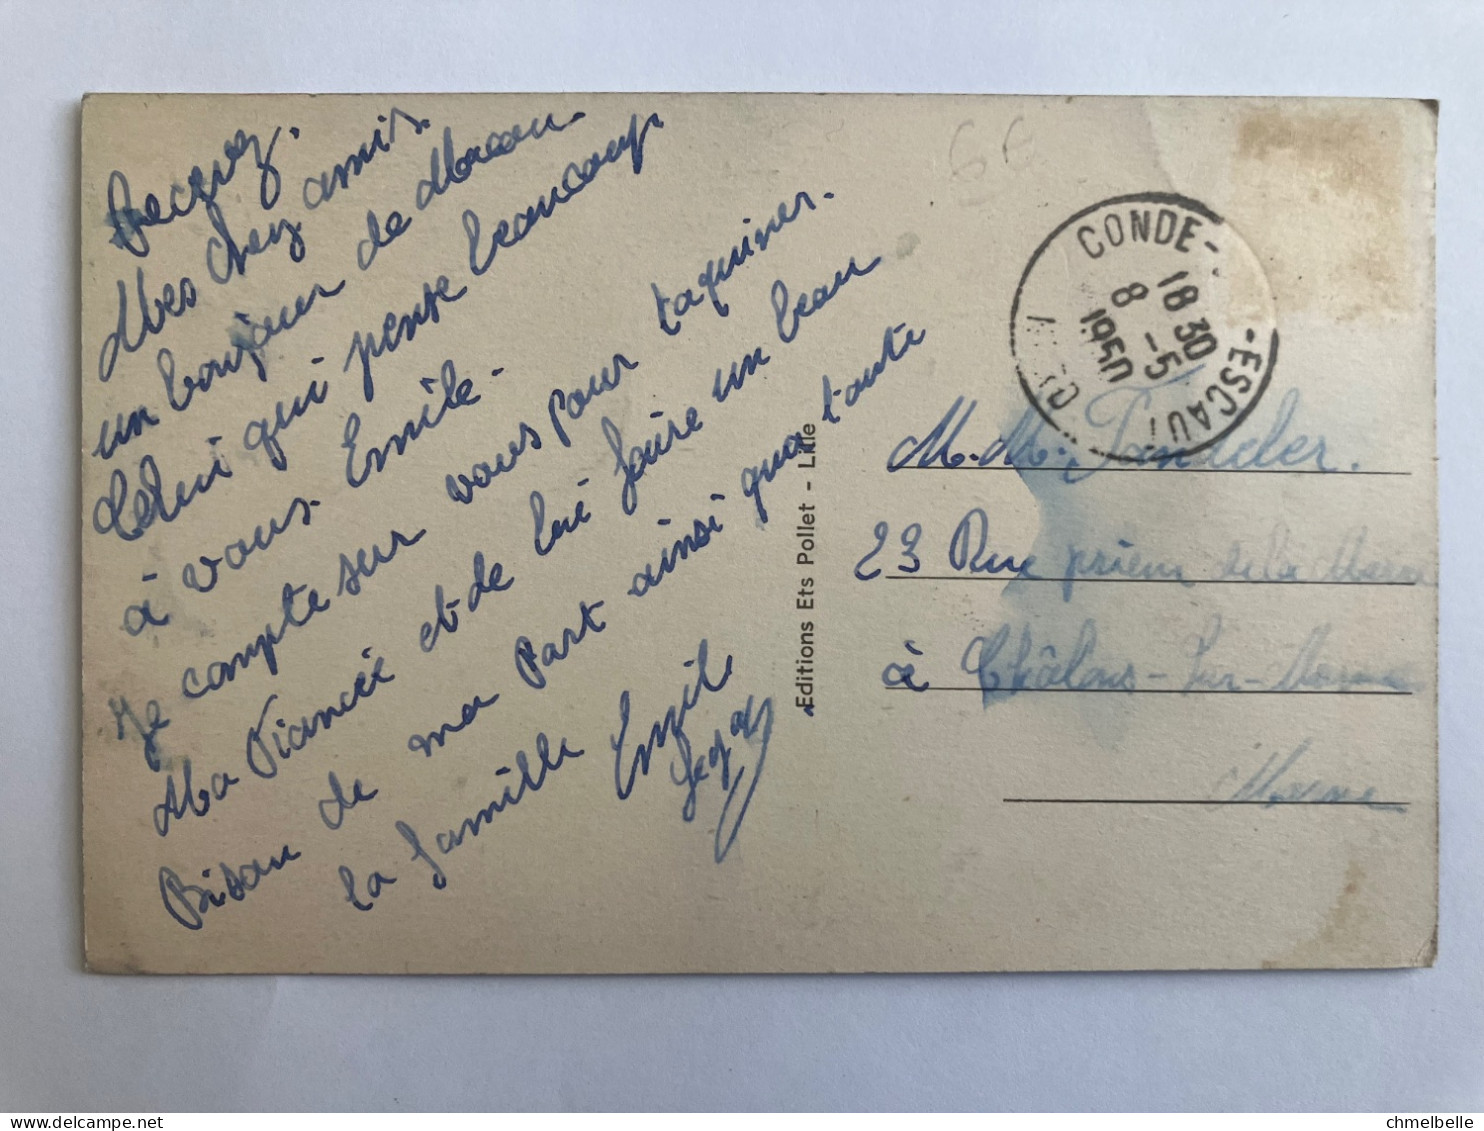 Mes chez amis.
un bonjour de
Celui qui pense beaucoup
à vous. Emile.
Je compte sur vous pour taquiner.
Ma Fiancée et de lui faire un beau
de ma Part ainsi qua toute
la famille Emil
Editions Ets Pollet - Lille
6 €
CONDE-
-ESCAUT
18 30
8 -5
1950
M. M.
23 Rue prieur de la Marne
à Châlons-sur-Marne
Marne
delcampe.net
chmelbelle